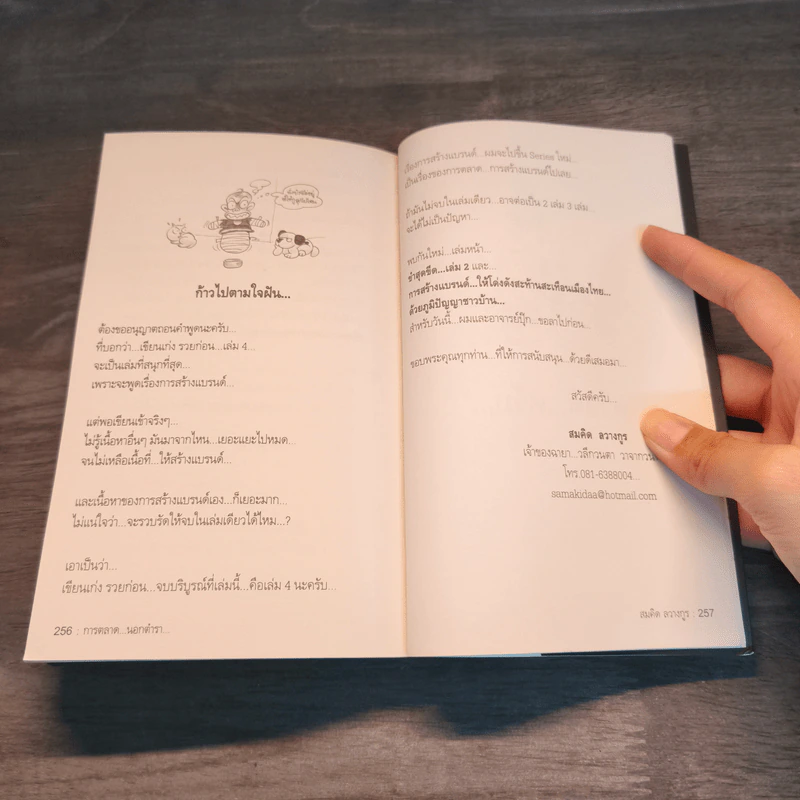 ก้าวไปตามใจฝัน...
ต้องขออนุญาตถอนคำพูดนะครับ...
ที่บอกว่า...เขียนเก่ง รวยก่อน...เล่ม 4...
จะเป็นเล่มที่สนุกที่สุด...
เพราะจะพูดเรื่องการสร้างแบรนด์...
แต่พอเขียนเข้าจริงๆ...
ไม่รู้เนื้อหาอื่นๆ มันมาจากไหน...เยอะแยะไปหมด...
จนไม่เหลือเนื้อที่...ให้สร้างแบรนด์...
และเนื้อหาของการสร้างแบรนด์เอง...ก็เยอะมาก...
ไม่แน่ใจว่า...จะรวบรัดให้จบในเล่มเดียวได้ไหม...?
เอาเป็นว่า...
เขียนเก่ง รวยก่อน...จบบริบูรณ์ที่เล่มนี้...คือเล่ม 4 นะครับ...
256 : การตลาด...นอกตำรา...
เรื่องการสร้างแบรนด์...ผมจะไปขึ้น Series ใหม่...
เป็นเรื่องของการตลาด...การสร้างแบรนด์ไปเลย...
ถ้ามันไม่จบในเล่มเดียว...อาจต่อเป็น 2 เล่ม 3 เล่ม...
จะได้ไม่เป็นปัญหา...
พบกันใหม่...เล่มหน้า...
ขำสุดขีด...เล่ม 2 และ...
การสร้างแบรนด์...ให้โด่งดังสะท้านสะเทือนเมืองไทย...
ด้วยภูมิปัญญาชาวบ้าน...
สำหรับวันนี้...ผมและอาจารย์บุ๊ก...ขอลาไปก่อน...
ขอบพระคุณทุกท่าน...ที่ให้การสนับสนุน...ด้วยดีเสมอมา...
สวัสดีครับ...
สมคิด ลวางกูร
เจ้าของฉายา...วลีกวนตา วาจากวน
โทร.081-6388004...
samakidaa@hotmail.com
สมคิด ลวางกูร : 257